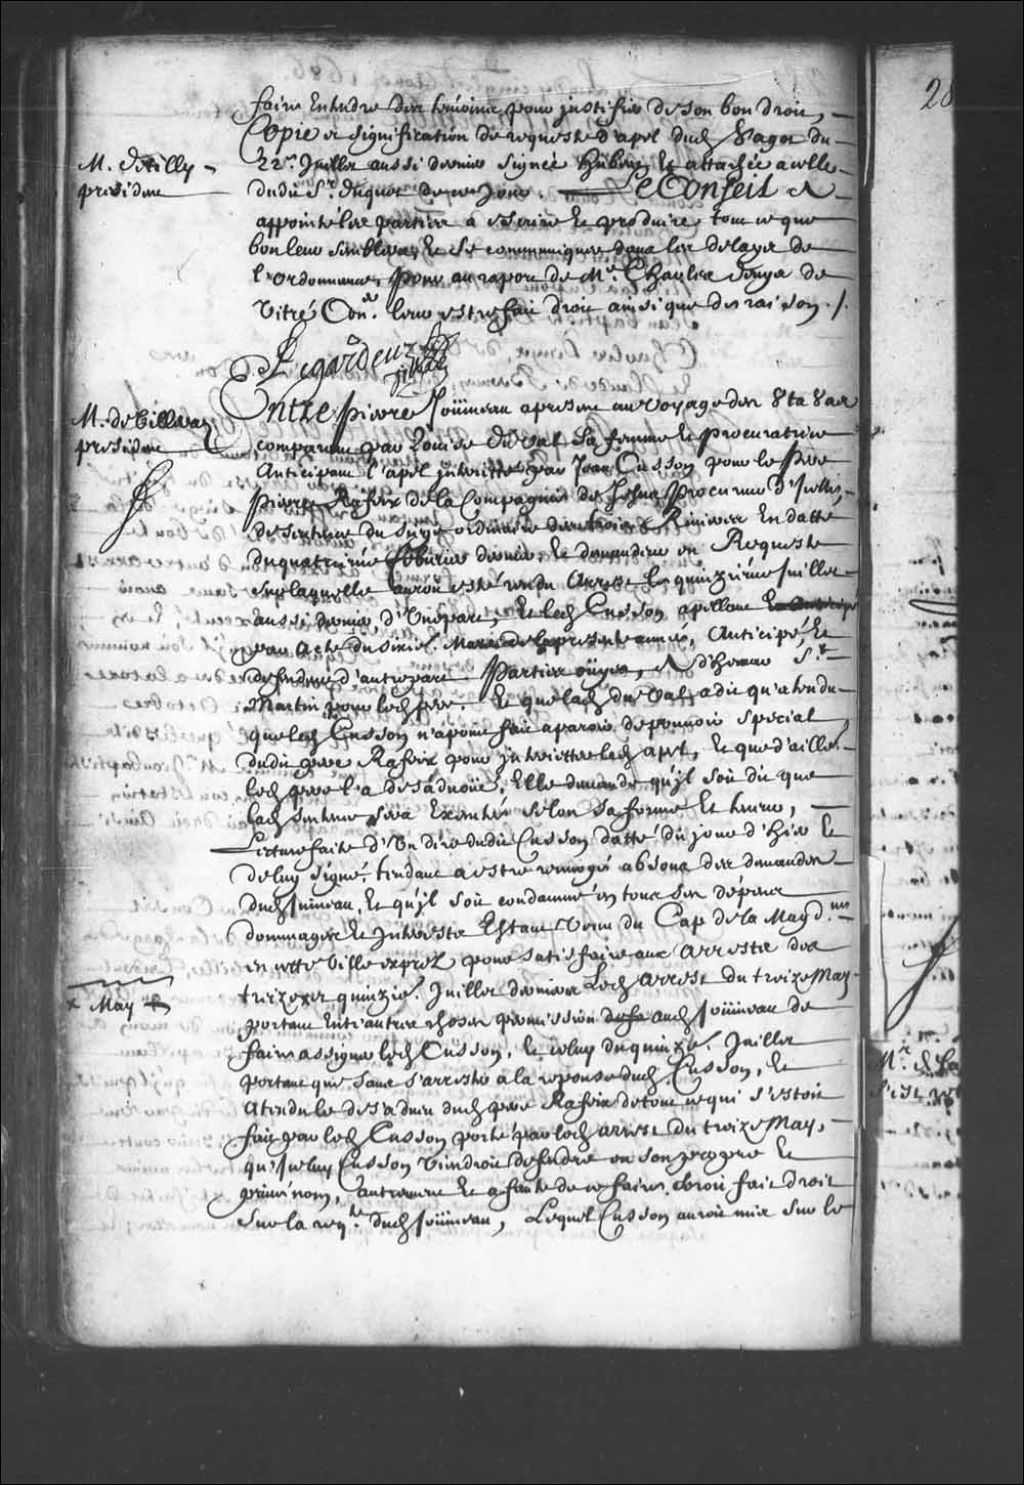 faire Entendre des temoins pour justifier de son bon droit,
Copie et signification de requeste d'apel dud. Vagot du
M. de Tilly president
22e. Juillet aussi dernier signée Hubert, Et attachée a celle
dudit Sr. duquet de ce jour. Le Conseil A
appointé les parties a escrire Et produire, tout ce que
bon leur semblera, Et se communiquer dans les delays de
l'ordonnance, pour au raport de Me. Charles Denys de
Vitré Con.er leur estre fait droit ainsi que de raison ./.
Legardeur
tilly
M. de Villeray president
Entre pierre Joüineau a present au voyage des 8ta8as
comparant par Louise du Val sa femme Et procuratrice
Anticipant l'apel interjetté par Jean Cusson pour le pere
pierre Rafeix de la Compagnie de Jesus procureur d'Icelles
de sentence du Juge ordinaire des trois Rivieres En datte
du quatriéme febvrier dernier, Et demandeur en Requeste
sur laquelle seroit esté rendu Arrest le quinziéme Juillet
aussi dernier, d'Une part, Et led. Cusson apellant
par Acte du sixie. Mars de la presente année, Anticipé, Et
defendeur d'autre part. parties oüyes, A d'heure Sr.
Martin pour led. pere. Et que lad. du Val a dit qu'atendu
que led. Cusson n'a point fait aparoir de pouvoir special
dudit pere Rafeix pour interjetter led. apel, Et que d'ailleurs
led. pere l'a desadvoüé, Elle demande qu'jl soit dit que
lad. sentence sera Executée selon sa forme Et teneur,
Lecture faite d'Un dire dudit Cusson datté du jour d'hier Et
de luy signé, tendant a estre renvoyé absous des demandes
dud. Joüineau, Et qu'jl soit condamné en tous ses dépens
dommages Et Interests Estant Venu du Cap de la Magd.ne
en cette Ville exprez pour satisfaire aux arrests des
treize may quinzie. Juillet derniers Led. arrest du treize May
x May
portant Entr'autres choses permission aud. Joüineau de
faire assigner led. Cusson, Et celuy du quinzie. Juillet
portant que sans s'arrester a la reponse dud. Cusson, Et
Atendu le desadveu dud. pere Rafeix de tout ce qui s'estoit
fait par led. Cusson porté par led. arrest du treize May,
qu'Iceluy Cusson Viendroit defendre en son propre Et
privé nom, autrement Et a faute de ce faire seroit fait droit
sur la req.te dud. Joüineau, Lequel Cusson auroit mis sur le
28